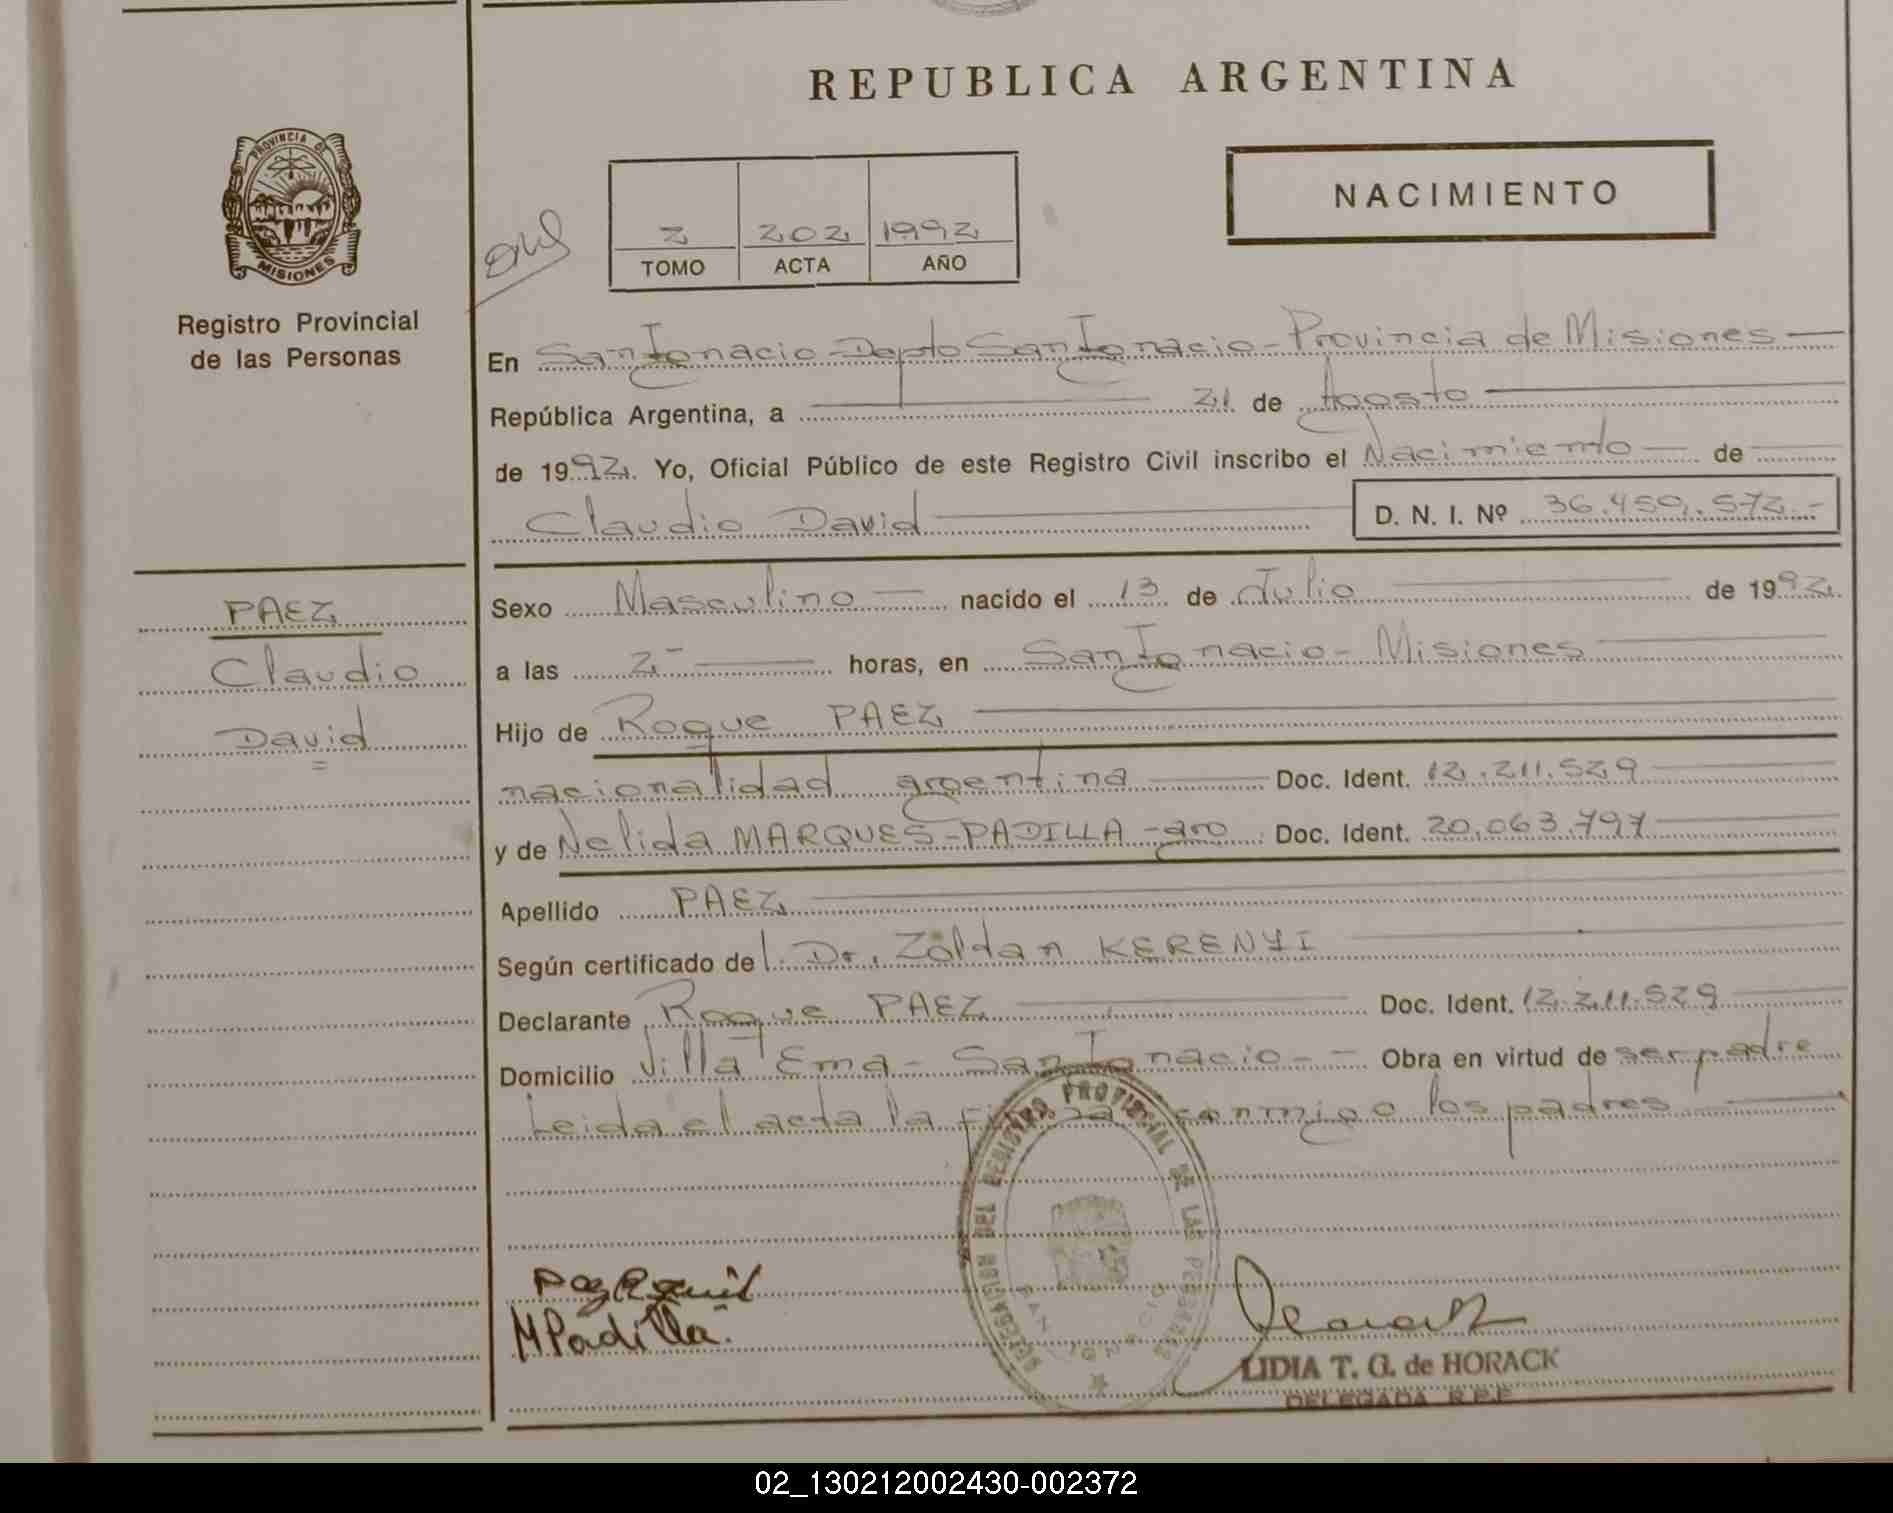 REPUBLICA ARGENTINA
PROVINCIA DE
MISIONES
Registro Provincial
de las Personas
NACIMIENTO
2 202 1992
TOMO ACTA AÑO
En San Ignacio - Depto San Ignacio - Provincia de Misiones -
República Argentina, a 21 de Agosto
de 1992. Yo, Oficial Público de este Registro Civil inscribo el Nacimiento - de
Claudio David D. N. I. Nº 36.459.572.-
PAEZ
Claudio
David
Sexo Masculino - nacido el 13 de Julio de 1992.
a las 2- horas, en San Ignacio - Misiones
Hijo de Roque PAEZ
nacionalidad argentina Doc. Ident. 12.211.529
y de Nelida MARQUES-PADILLA - arg Doc. Ident. 20.063.797
Apellido PAEZ
Según certificado del Dr. Zoltan KERENYI
Declarante Roque PAEZ Doc. Ident. 12.211.529
Domicilio Villa Ema - San Ignacio - - Obra en virtud de ser padre
Leida el acta la firman conmigo los padres
DELEGACION DEL REGISTRO PROVINCIAL DE LAS PERSONAS
SAN IGNACIO
M Padilla.
LIDIA T. G. de HORACK
DELEGADA R.P.P.
02_130212002430-002372